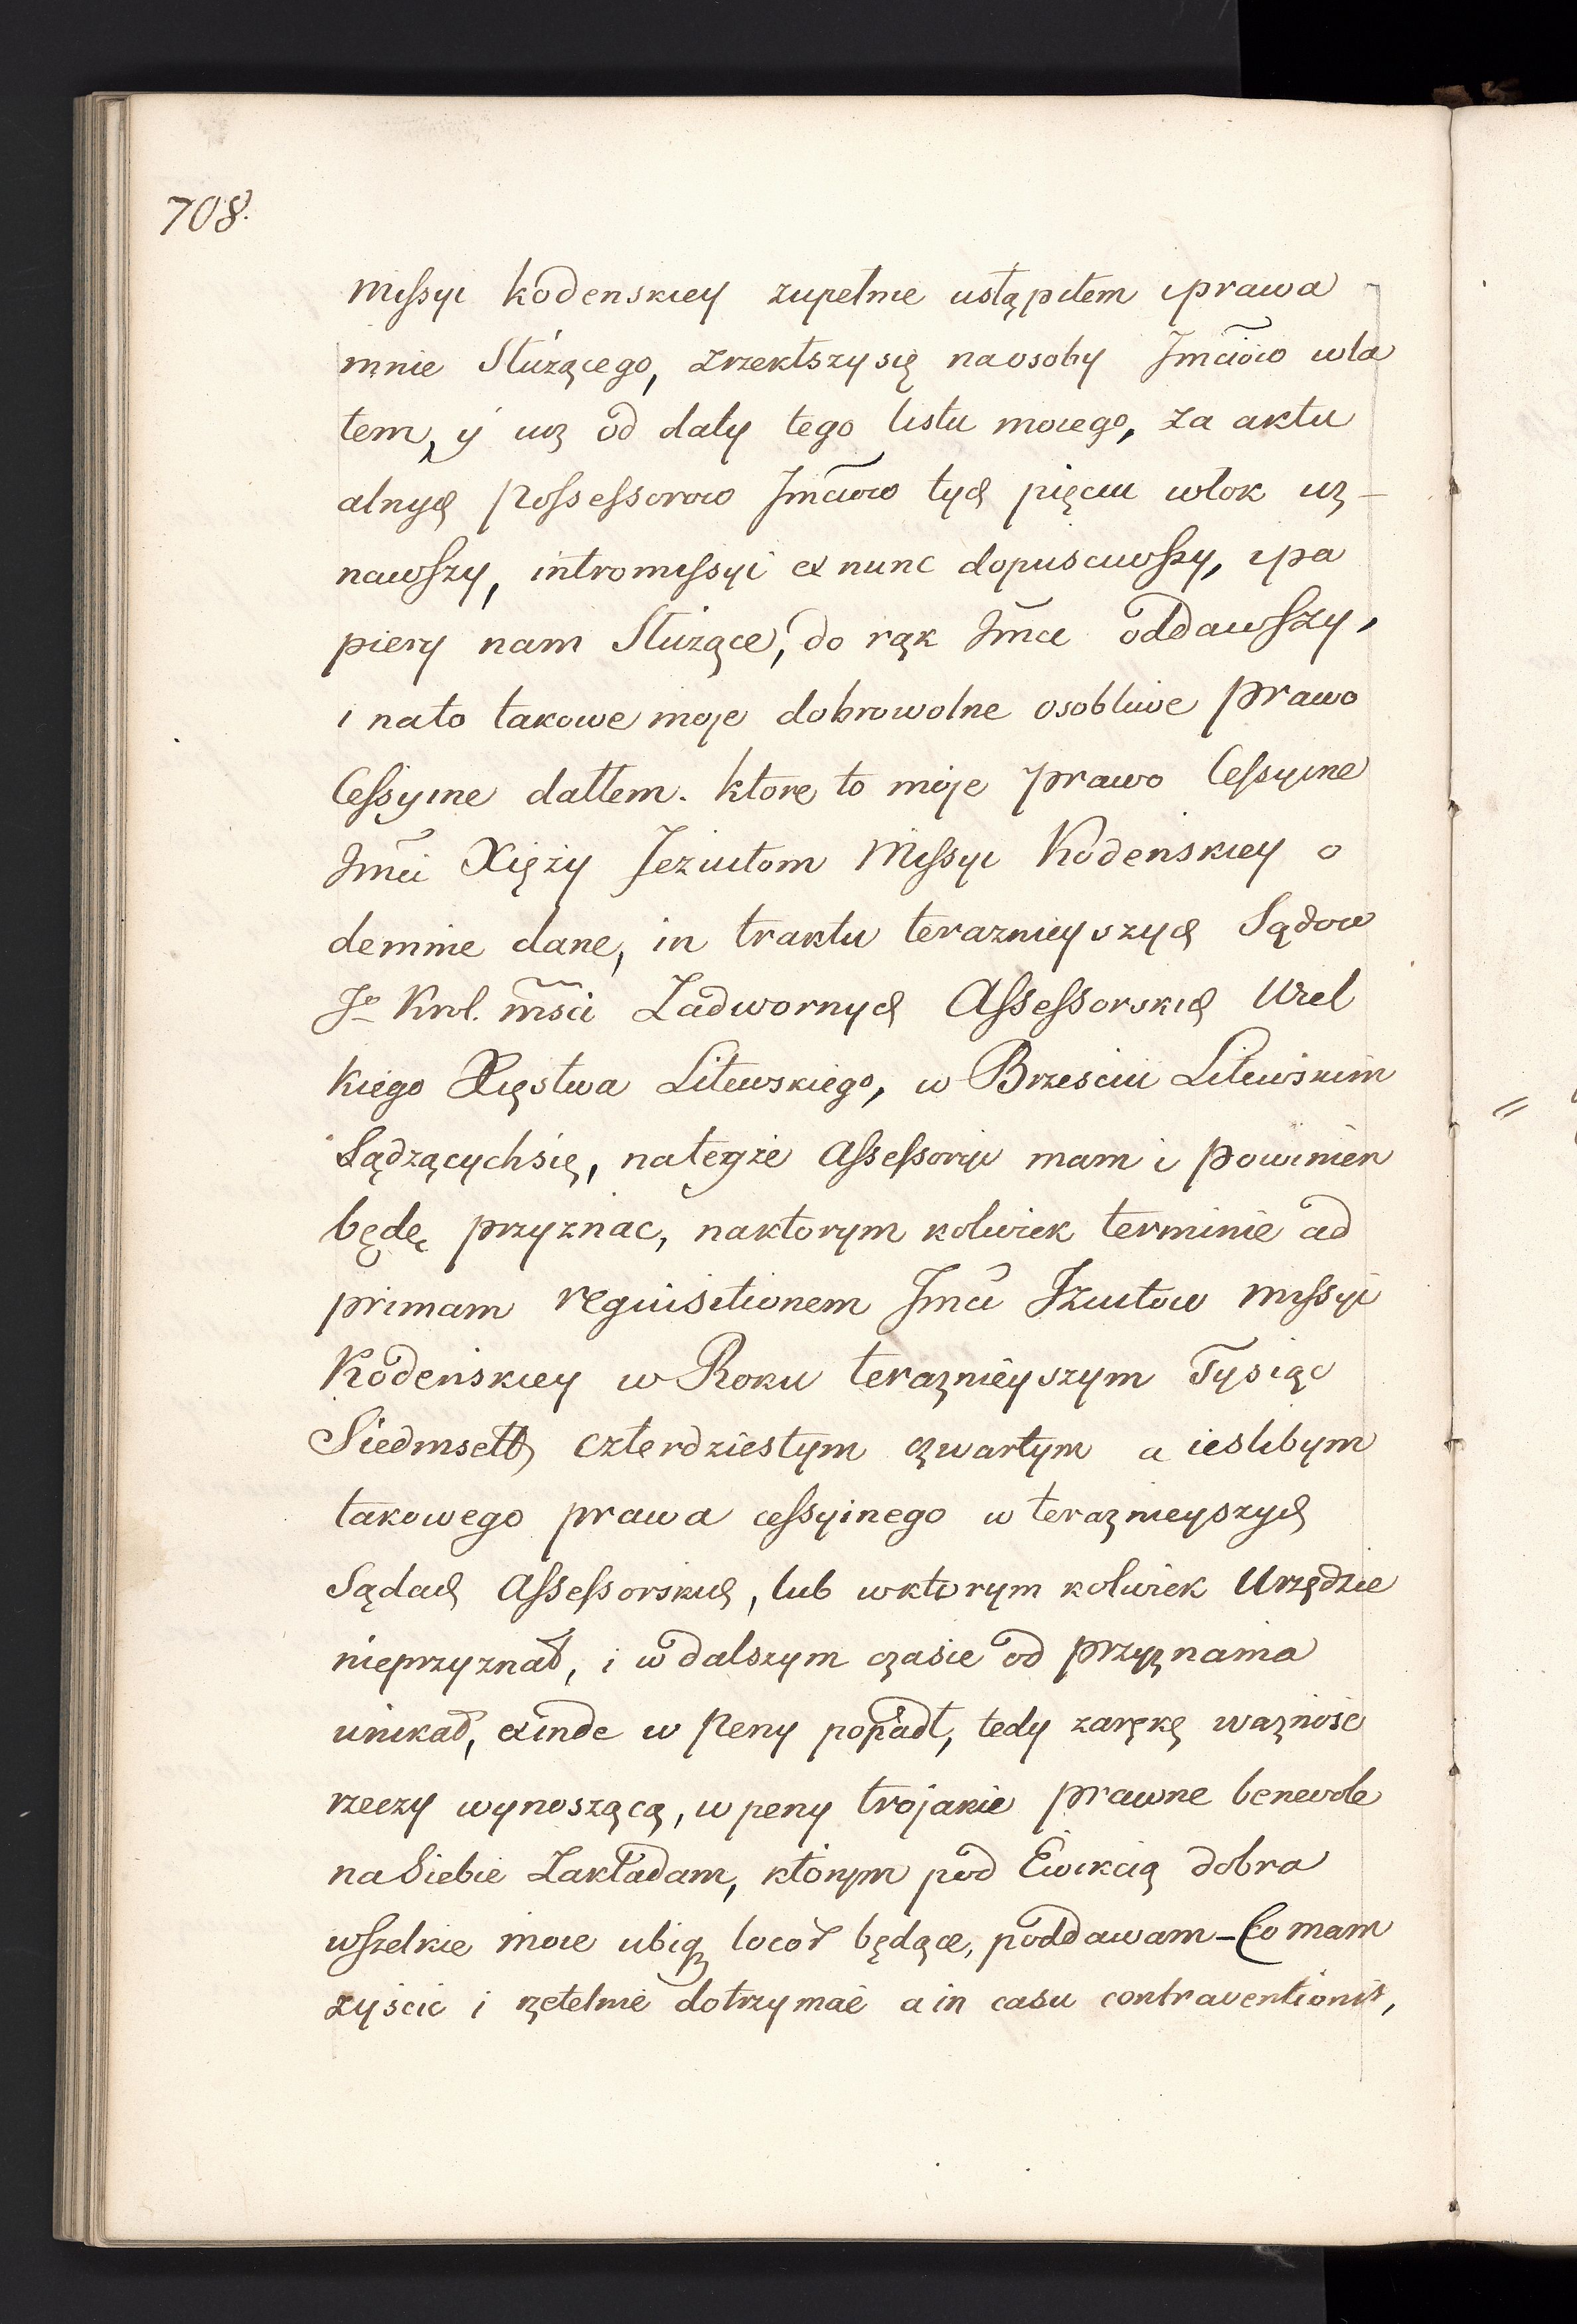 708.
Missyi kodenskiey zupełnie ustąpiłem iprawa
mnie Służącego, zrzekłszysię naosoby Jmciow wla
łem, ÿ uż od daty tego listu moiego, za aktu
alnych Possessorow Jmciow tych pięciu włok uz-
nawszy, intromissyi ex nunc dopusciwszy, ipa
piery nam Służące, do rąk Jmci oddawszy,
i nato takowe moje dobrowolne osobliwe prawo
Cessyine dałłem. ktore to moje prawo Cessyine
Jmci Xięży Jezuitom Missyi Kodeńskiey o
demnie dane, in traktu teraznieyszych Sądow
Jo Krol. mści Zadwornych Assessorskich Wiel
kiego Xięstwa Litewskiego, w Brzesciu Litewskim
Sądzącychsię, nateyże Assessoryi mam i powinien
będę przyznac, naktorym kolwiek terminie ad
primam requisitionem Jmci Jzuitow missyi
Kodeńskiey w Roku teraznieyszym Tysiąc
Siedmsett czterdziestym czwartym a ieslibym
takowego prawa cessyinego w teraznieyszych
Sądach Assessorskich, lub wktorym kolwiek Urzędzie
nieprzyznał, i w dalszym czasie od przyznania
unikał, exinde w Peny popadł, tedy zarękę ważność
rzeczy wynoszącą, w peny trojakie prawne benevole
naSiebie Zakładam, którym pod Ewikcią dobra
wszelkie moie ubiq locor będące, poddawam – Co mam
zyścic i rzetelnie dotrzymać a in casu contraventionis,